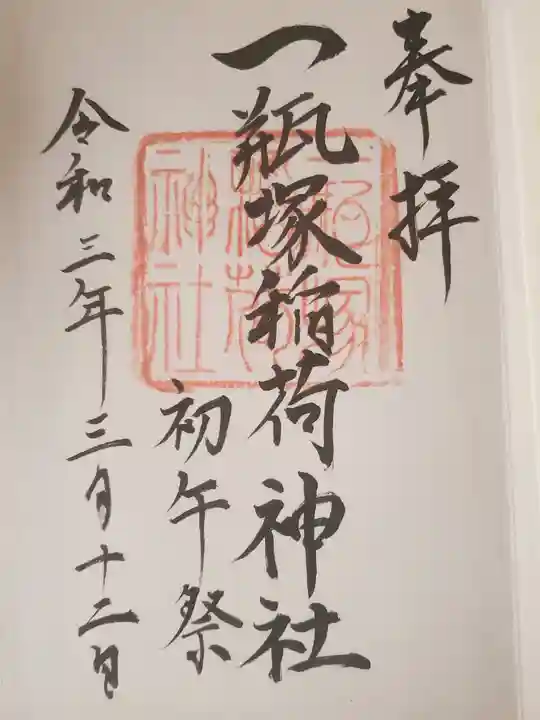 奉拝
一瓶塚稲荷神社
初午祭
令和三年三月十二日
一瓶塚
稲荷
神社